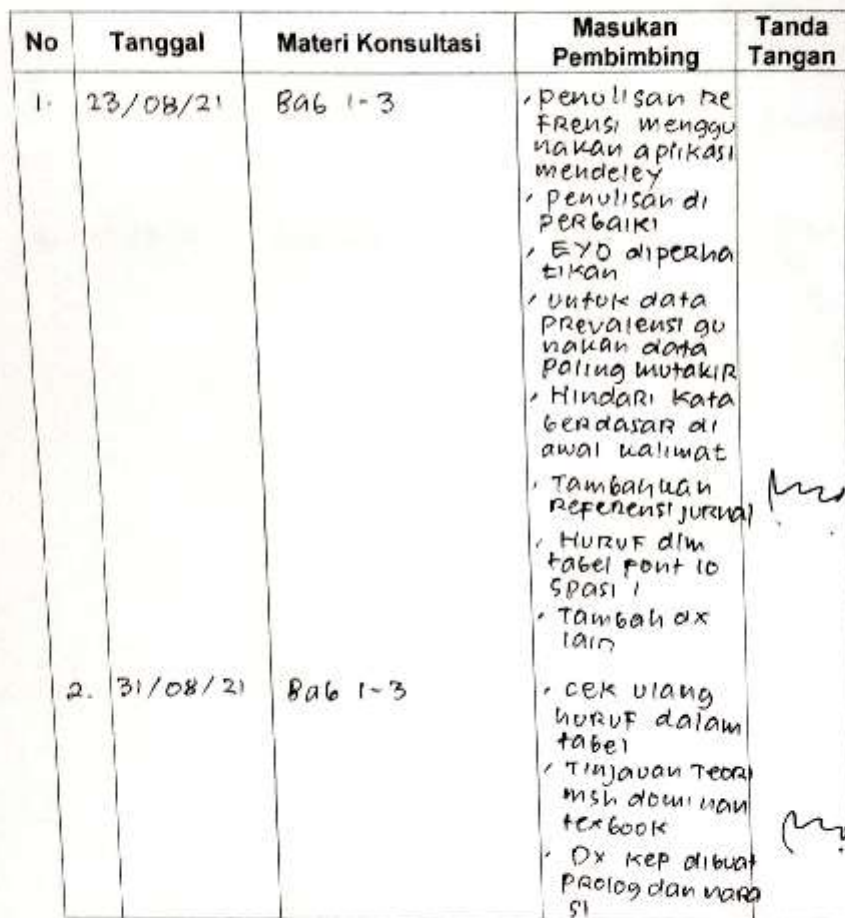 No Tanggal Materi Konsultasi Masukan Pembimbing Tanda Tangan
1. 23/08/21 Bab 1-3 , penulisan Re
FRensi menggu
nakan aplikasi
mendeley
, penulisan di
perbaiki
, EYD diperha
tikan
, untuk data
prevalensi gu
nakan data
paling mutakir
, Hindari kata
berdasar di
awal kalimat
, Tambahkan
Referensi jurnal
, Huruf dlm
tabel font 10
spasi 1
, Tambah dx
lain
2. 31/08/21 Bab 1-3 , cek ulang
huruf dalam
tabel
, Tinjauan Teori
msh dominan
texbook
, Dx kep dibuat
prolog dan nara
si